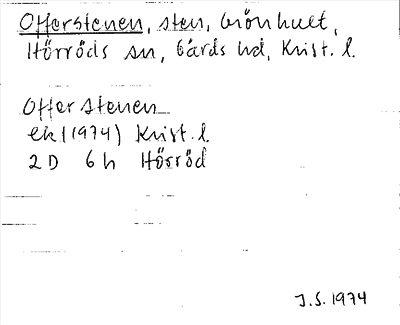 Offerstenen, sten, Grönhult,
Hörröds sn, Gärds hd, Krist. l.
Offerstenen
ek 1 (1974) Krist. l.
2 D 6 h Hörröd
J.S. 1974